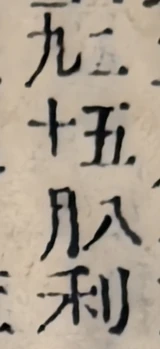 二五八
九十月
利